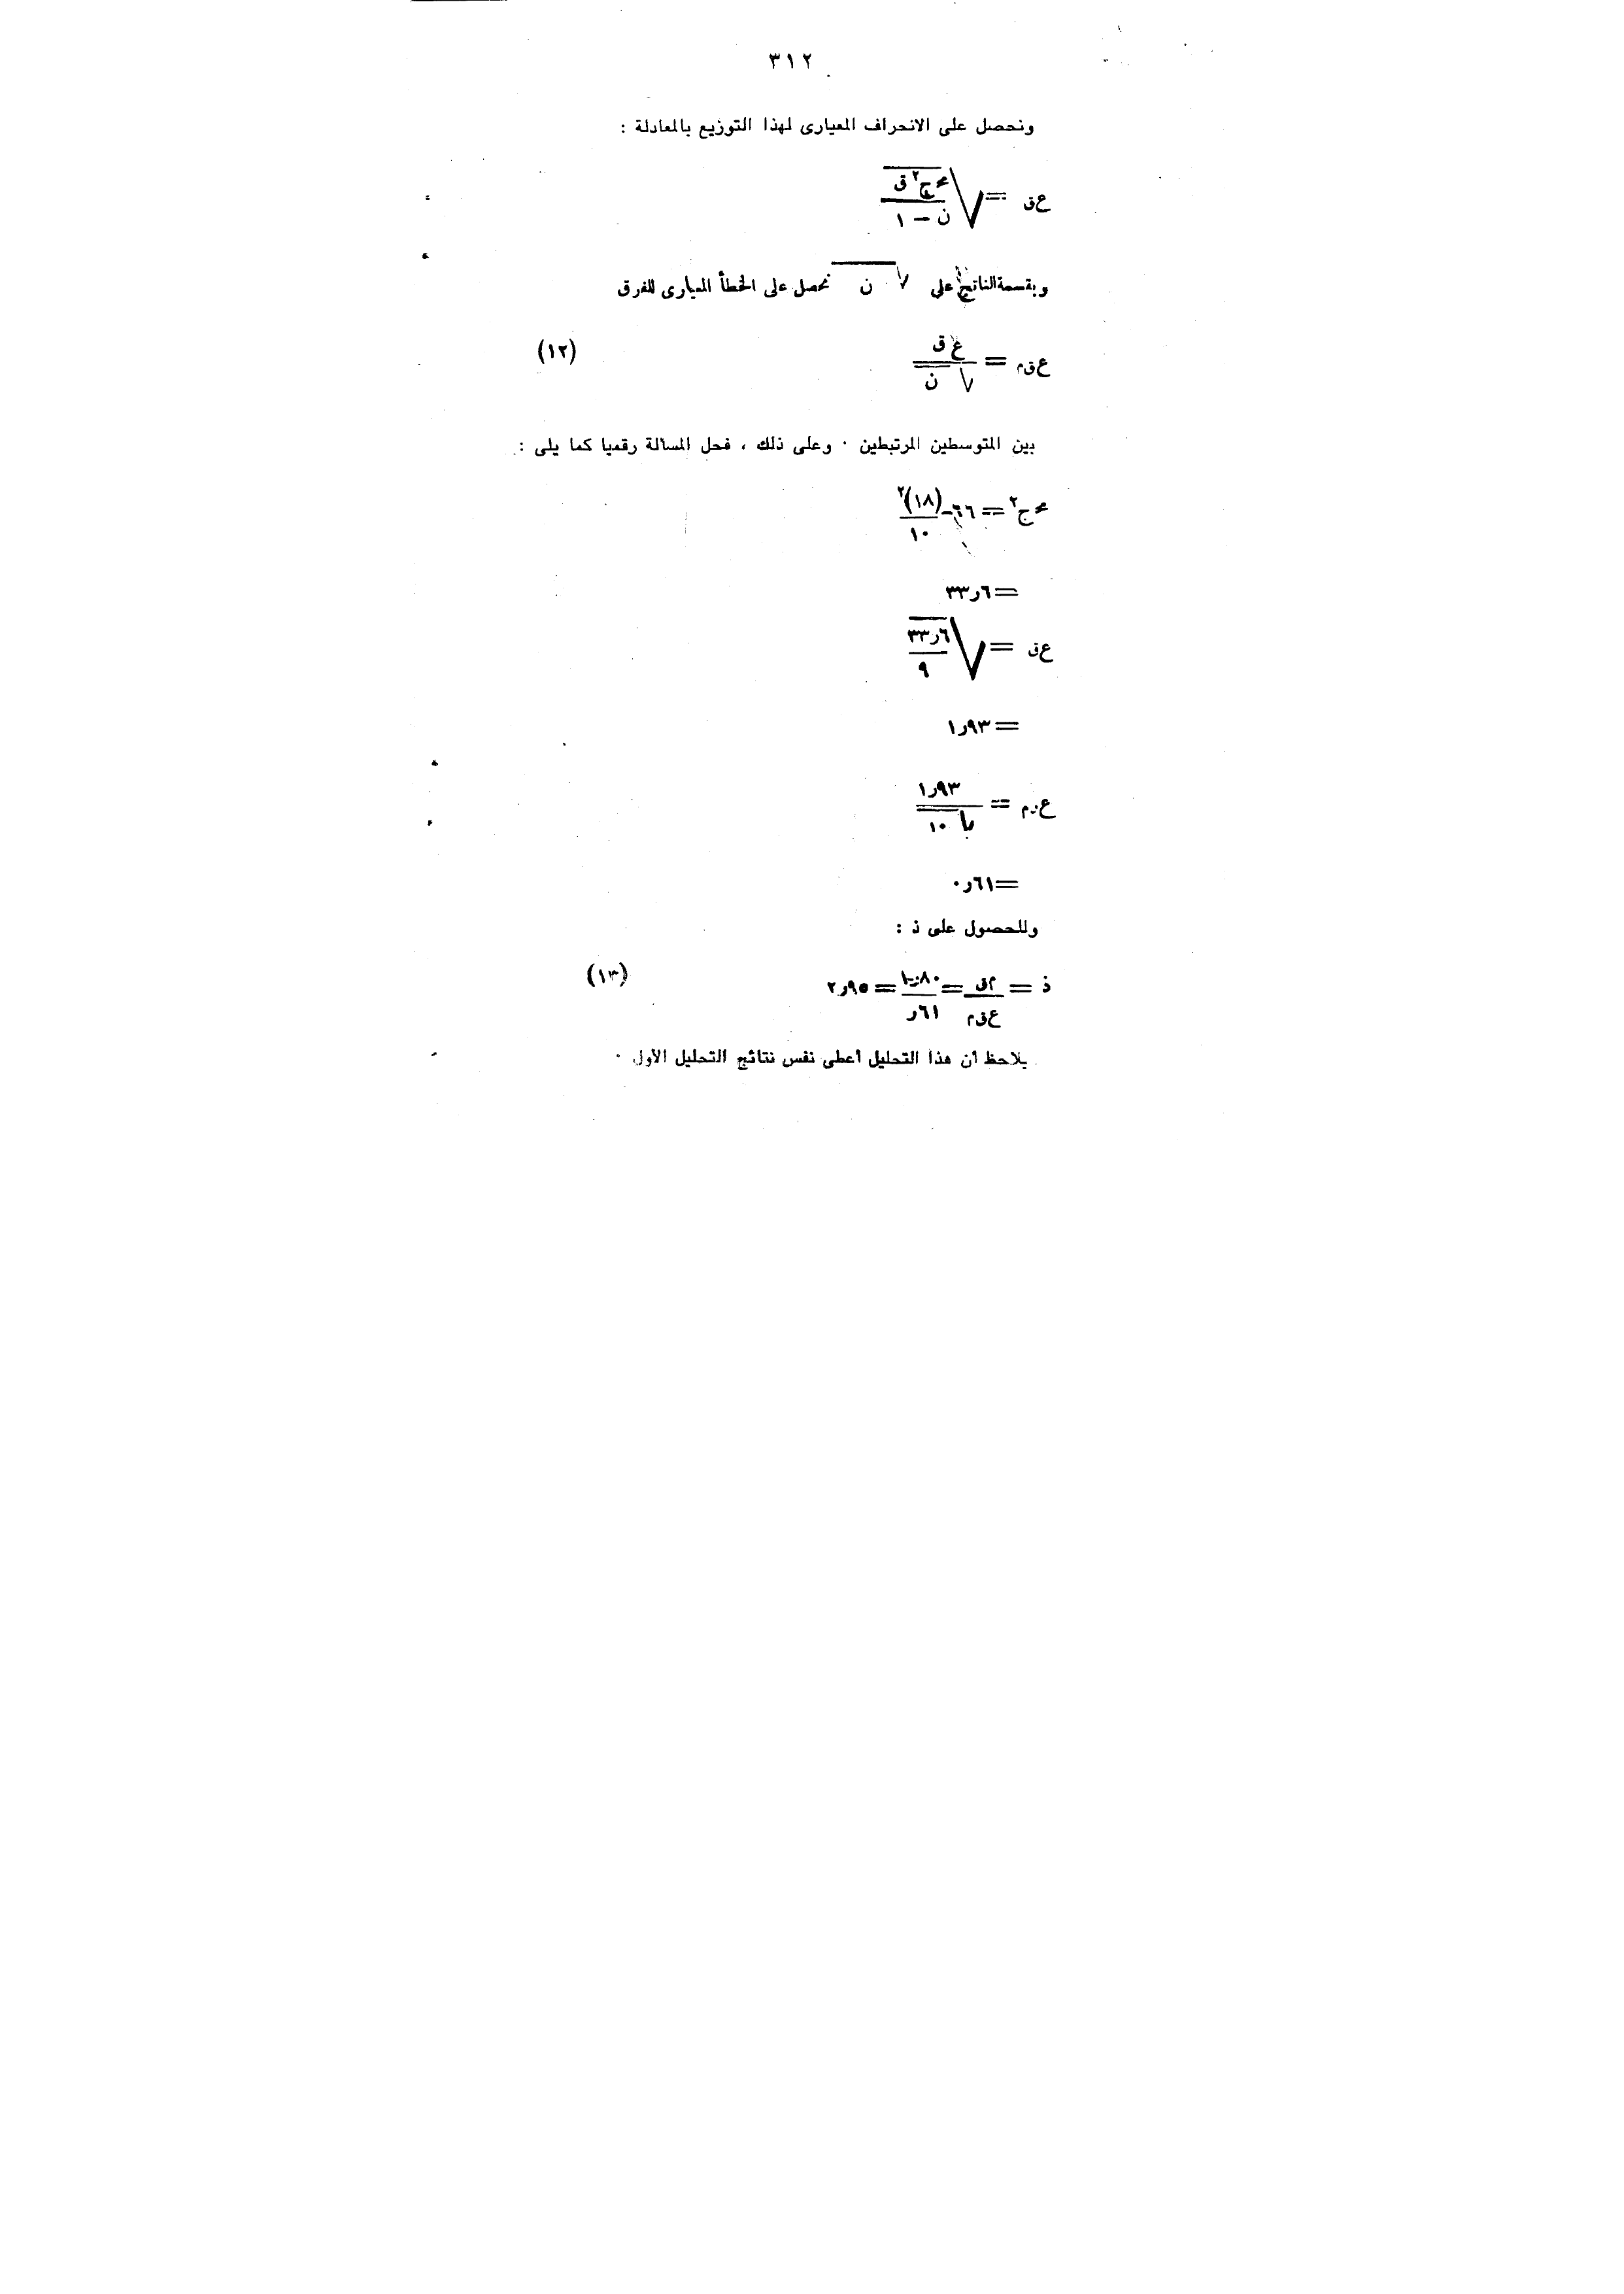 ٣١٢
ونحصل على الانحراف المعيارى لهذا التوزيع بالمعادلة :
ع ق = √ مح ح٢ ق / ن — ١
وبقسمة الناتج على √ ن نحصل على الخطأ المعيارى للفرق
ع ق م = ع ق / √ ن (١٢)
بين المتوسطين المرتبطين ٠ وعلى ذلك ، فحل المسألة رقميا كما يلى :
مح ح٢ = ٦٦ – (١٨)٢ / ١٠
= ٣٣٫٦
ع ق = √ ٣٣٫٦ / ٩
= ١٫٩٣
ع ق م = ١٫٩٣ / √ ١٠
= ٠٫٦١
وللحصول على ذ :
ذ = م ق / ع ق م = ١٫٨٠ / ٫٦١ = ٢٫٩٥ (١٣)
يلاحظ أن هذا التحليل أعطى نفس نتائج التحليل الأول ٠